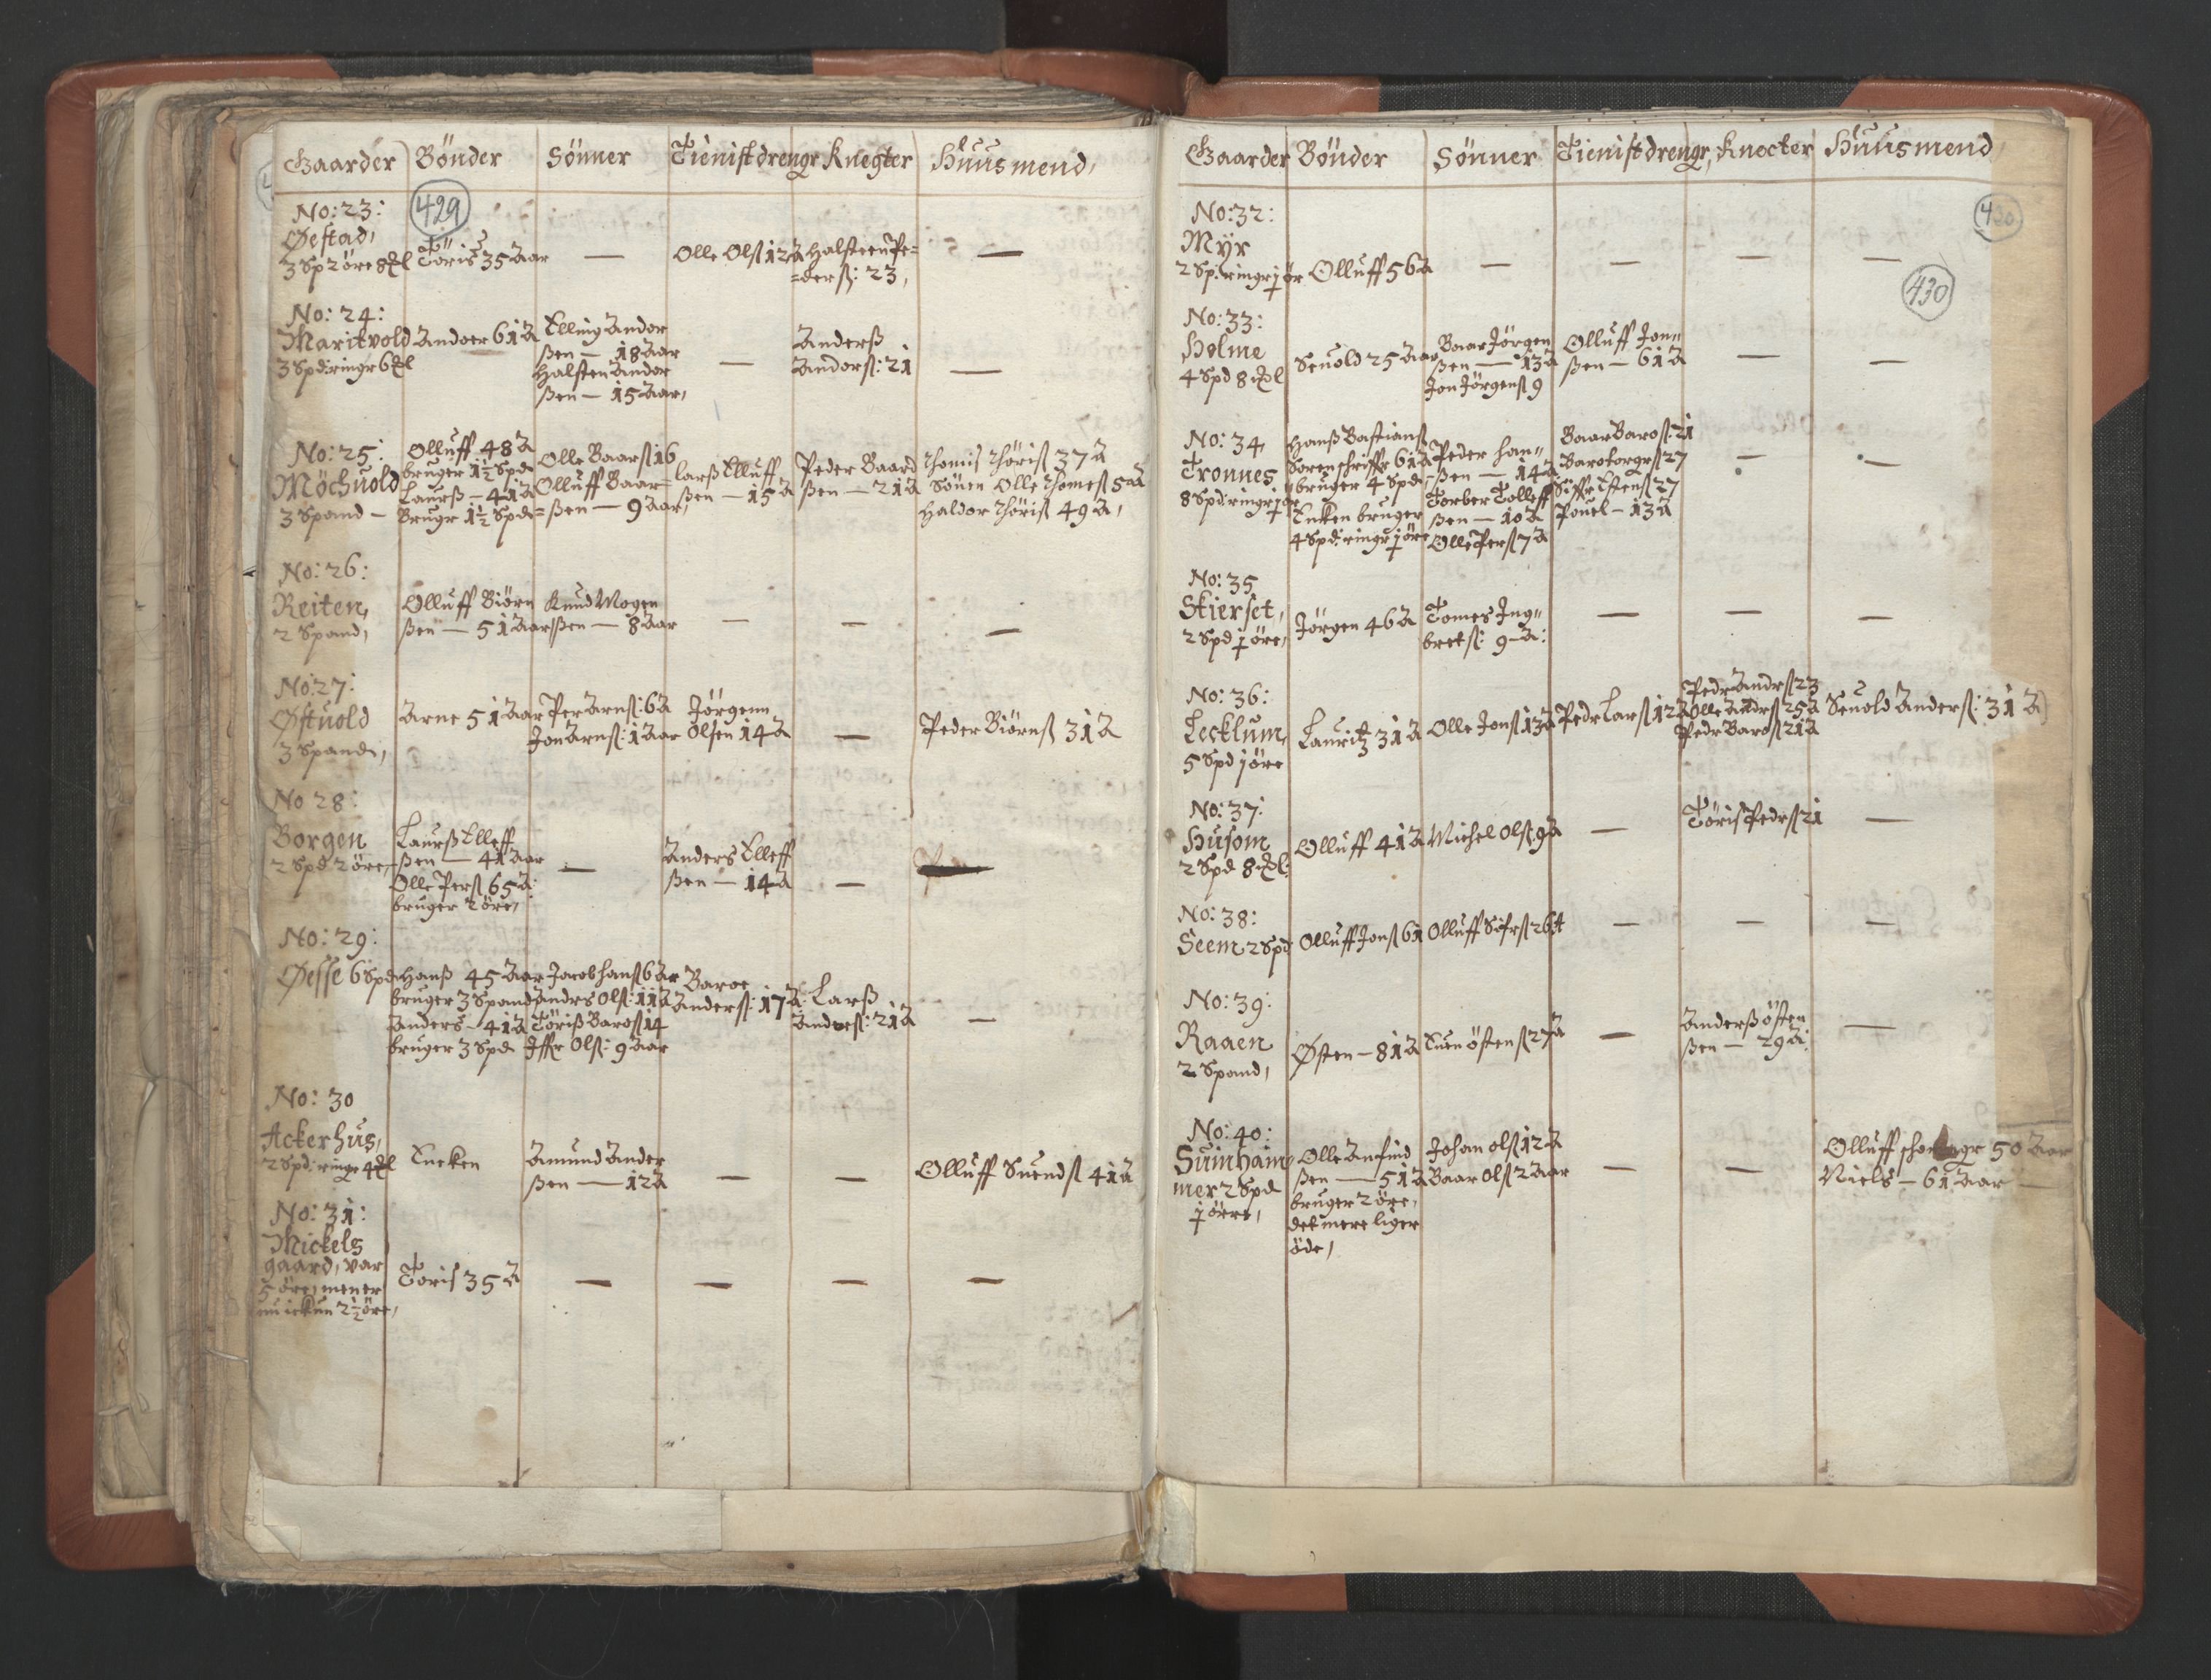 Gaarder Bønder Sønner Tienistdrengr Knegter Huusmend,
429
No: 23:
Øestad,
3 Sp 2 øre 8 Toris 35 Aar — Olle Olß 12 A Halsteen Pe=
=derß: 23, —
No: 24:
Maritvold Andoer 61 A Elling Andor
ßen — 18 Aar
3 Spd: ringr 6 Halsten Andor
ßen — 15 Aar, — Anderß
Andorß: 21 —
No: 25:
Möchuold
3 Spand —
Olluff 48 A
bruger 1½ Spd
Laurß — 41 A
Brugr 1½ Spd
Olle Baarß 16
Olluff Baar=
=ßen — 9 Aar,
larß Elluff
ßen — 15 A
Peder Baard
ßen — 21 A
Thomis Thöriß 37 A
Sönen Olle Thomeß 5 A
Haldor Thöriß 49 A,
No: 26:
Reiten,
2 Spand,
Olluff Biörn
ßen — 51 Aar
Knud Mogen
ßen — 8 Aar
— — —
No: 27:
Østuold
3 Spand,
Arne 51 Aar
Per Arnß: 6 A
Jon Arnß: 1 Aar
Jörgenn
Olsen 14 A
—
Peder Biörnß 31 A
No 28:
Borgen
2 Spd 2 öre,
Laurß Elleff
ßen — 41 Aar
Olle Perß 65 A:
bruger 2 öre,
—
Anders Elleff
ßen — 14 A
—
No: 29:
Øesse 6 Spd
Hanß 45 Aar
bruger 3 Spand
Anders — 41 A
bruger 3 Spd
Jacob Hanß 6 Ar
Andrs Olß: 11 A
Töriß Baroß 14
Iffr Olß: 9 Aar
Baroe
Anderß: 17 A:
Larß
Andreß: 21 A
—
No: 30
Ackerhus,
2 Spd: ringr 4
Encken
Amund Ander
ßen — 12 A
— —
Olluff Suendß 41 A
No: 31:
Mickels
gaard, var
5 öre, men er
nu ickun 2½ öre,
Toris 35 A
— — — —
Gaarder Bønder Sønner Tienistdrengr, Knecter Huusmend,
430
No: 32:
Myr
2 Sp: ringr 1 ør
Olluff 56 A
— — — —
430
No: 33:
Holme
4 Spd 8
Seuold 25 Aar
Baar Jørgen
ßen — 13 A
Jon Jörgenß 9
Olluff Jon=
ßen — 61 A
— —
No: 34,
Tronnes
8 Spd: ringr 1 ør
Hanß Bastianß
Sorenschriffr 61 A
bruger 4 Spd
Enken bruger
4 Spd: ringr 1 öre
Peder Han=
=ßen — 14 A
Torber Tolleff
ßen — 10 A
Olle Perß 7 A
Baar Baroß: 21
Baro torgrß 27
Siffr Estenß 27
Pouel — 13 A
— —
No: 35
Skierset,
2 Spd 1 öre,
Jörgen 46 A
Tomes Ing=
bretß: 9 A:
— — —
No: 36:
Lecklum,
5 Spd 1 öre
Lauritz 31 A
Olle Jonß 13 A
Pedr Larß 12 A
Pedr Andrß 23
Olle Andrß 25 A
Pedr Baroß 21 A
Seuold Anderß: 31 A
No: 37:
Husom
2 Spd 8
Olluff 41 A
Michel Olß 9 A
—
Töriß Pedrß 21
—
No: 38:
Seem 2 Spd
Olluff Jonß 61
Olluff Sifrß 26 A
— — —
No: 39:
Raaen
2 Spand,
Østen — 81 A
Euen östenß 27 A
—
Anderß östen
ßen — 29 A:
—
No: 40:
Suinham
mer 2 Spd
1 örre,
Olle Anfind
ßen — 51 A
bruger 2 öre,
det mere liger
öde,
Johan Olß 12 A
Baar Olß 2 Aar
— —
Olluff 50 Aar
Niels — 61 Aar —